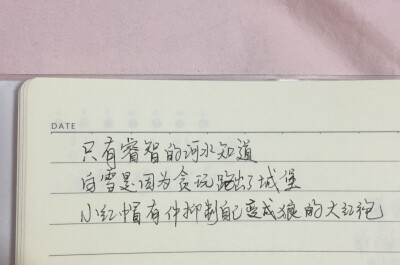 DATE
只有睿智的河水知道
白雪是因为贪玩跑出了城堡
小红帽有件抑制自己变成狼的大红袍